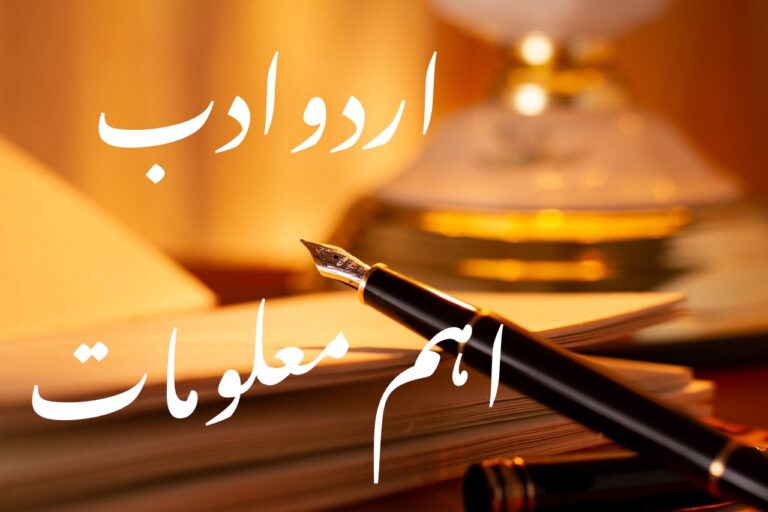 اردو ادب
اہم معلومات